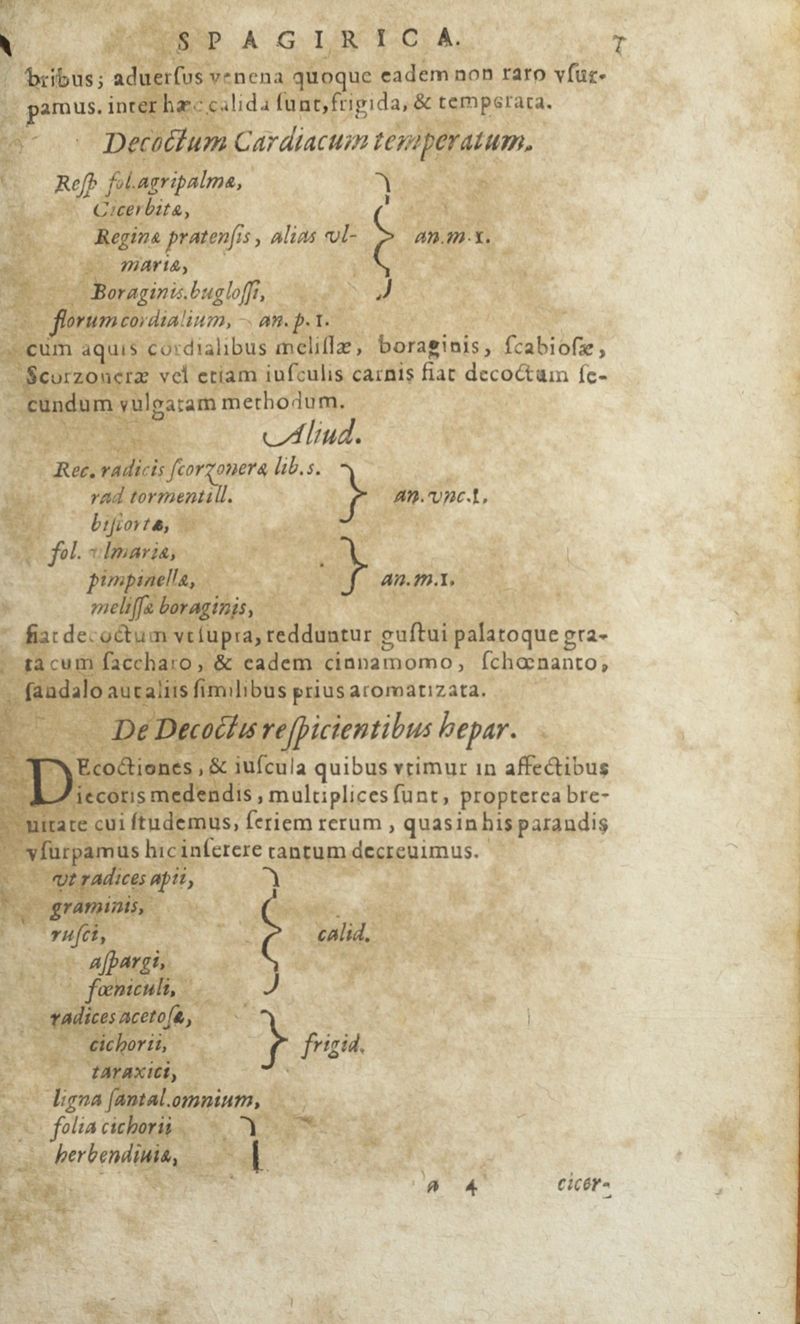 SPAGIRICA. 7
bribus; aduersus venena quoque eadem non raro vsur-
pamus. inter hæc calida sunt, frigida, & temperata.
Decoctum Cardiacum temperatum.
Resp fol. agripalmæ,
Cicerbitæ,
Reginæ pratensis, alias vl- an. m. 1.
mariæ,
Boraginis. buglossi,
florum cordialium, an. p. 1.
cum aquis cordialibus melissæ, boraginis, scabiosæ,
Scorzoneræ vel etiam iusculis carnis fiat decoctum se-
cundum vulgatam methodum.
Aliud.
Rec. radicis scorzoneræ lib. s.
rad tormentill. an. vnc. 1.
bistortæ,
fol. vlmariæ,
pimpinellæ, an. m. 1.
melissæ boraginis,
fiat decoctum vt supra, reddantur gustui palatoque gra-
ta cum saccharo, & eadem cinnamomo, schœnanto,
sandalo aut aliis similibus prius aromatizata.
De Decoctis respicientibus hepar.
DEcoctiones, & iuscula quibus vtimur in affectibus
iecoris medendis, multiplices sunt, propterea bre-
uitate cui studemus, seriem rerum, quas in his parandis
vsurpamus hic inserere tantum decreuimus.
vt radices apii,
graminis,
rusci, calid.
aspargi,
fœniculi,
radices acetosæ,
cichorii, frigid.
taraxici,
ligna santal. omnium,
folia cichorii
herb endiuiæ,
a 4 cicer-